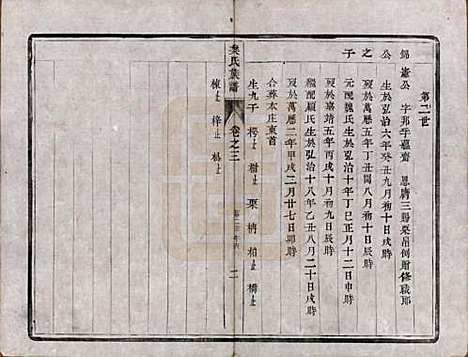 第二世
錦崙公 字邦平號齋 恩膺三賜粟帛例贈修職郎
公 生於弘治六年癸丑九月初十日戌時
之 歿於萬曆五年丁丑閏八月初十日辰時
子 元配魏氏生於弘治十年丁巳正月十二日申時
歿於嘉靖五年丙戌十月初九日寅時
繼配顧氏生於弘治十八年乙丑八月二十日戌時
歿於萬曆二年甲戌二月廿七日卯時
合葬本庄東首
生九子 栗 柟 柏
氏族譜
卷之三
二
梓